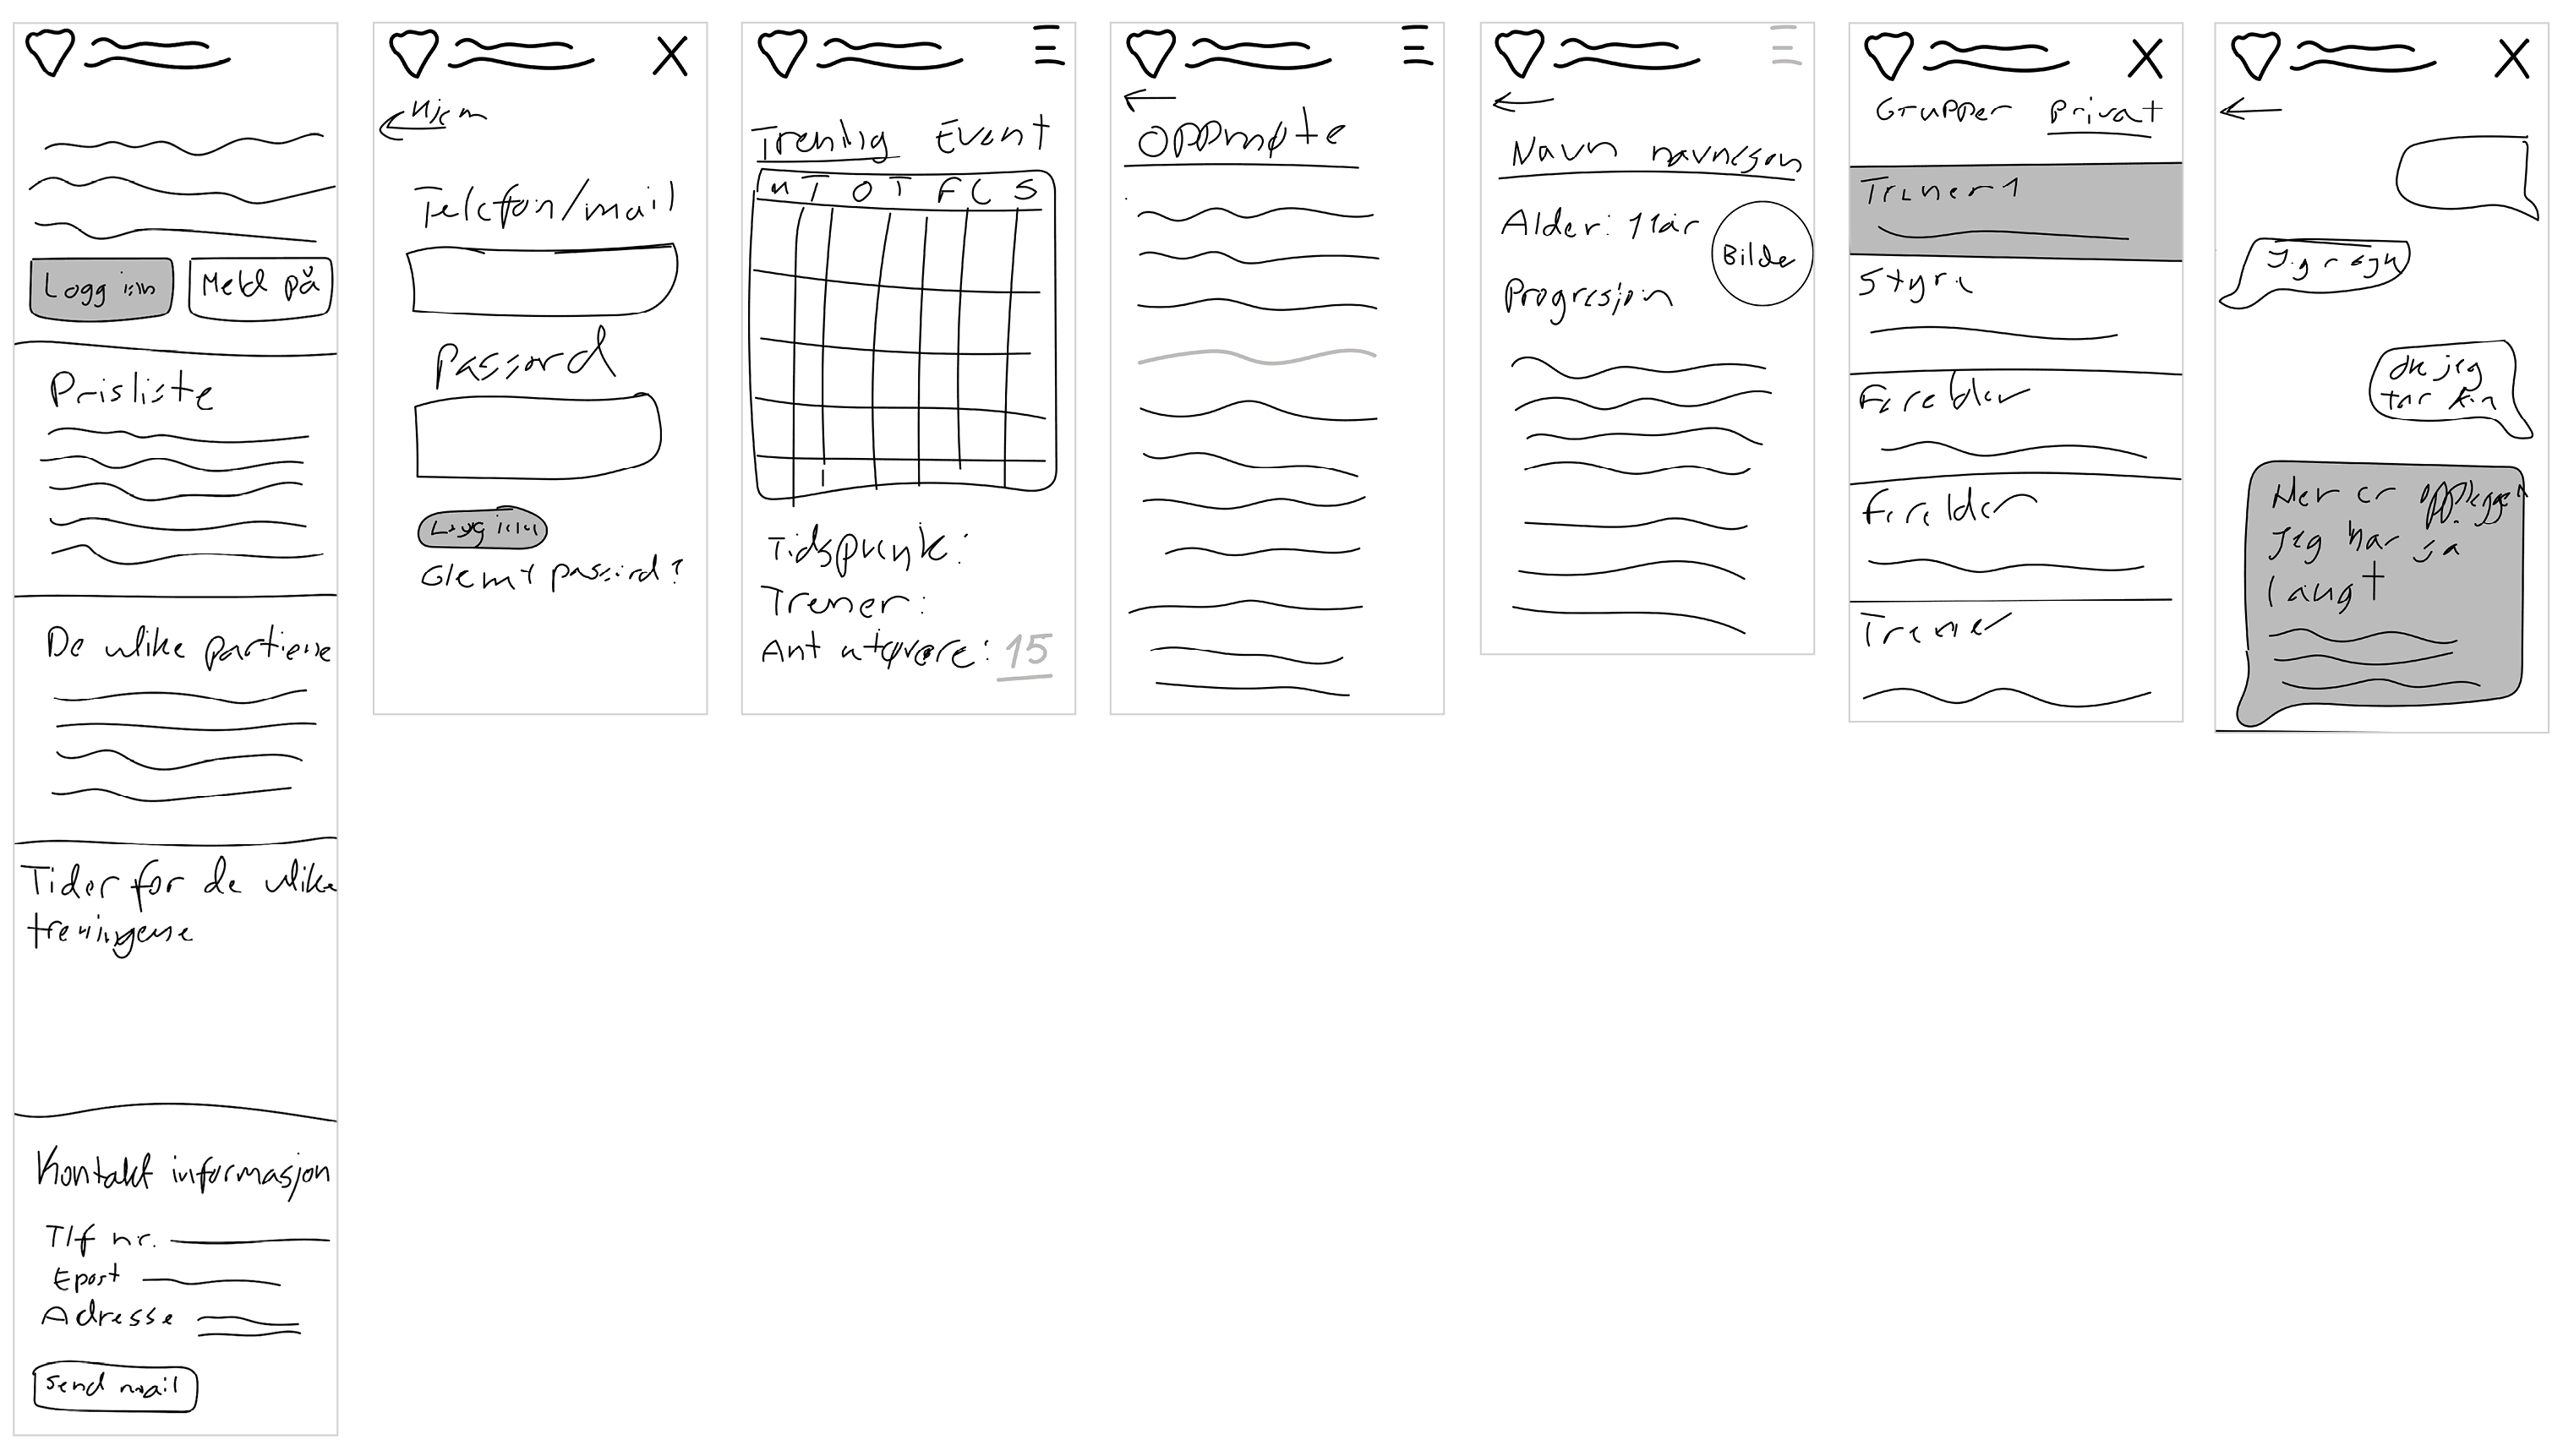 Logg inn
Meld på
Prisliste
De ulike partiene
Tider for de ulike
treningene
Kontakt informasjon
Tlf nr.
Epost
Adresse
Send mail
Hjem
Telefon/mail
Passord
Logg inn
Glemt passord?
Trening Event
M T O T F L S
Tidspunk:
Trener:
Ant utøvere: 15
Oppmøte
Navn navnesen
Alder: 11år
Bilde
Progresjon
Grupper Privat
Trener 1
Styre
Forelder
Forelder
Trener
ok jeg
tar
Her er opplegget
Jeg har så
langt